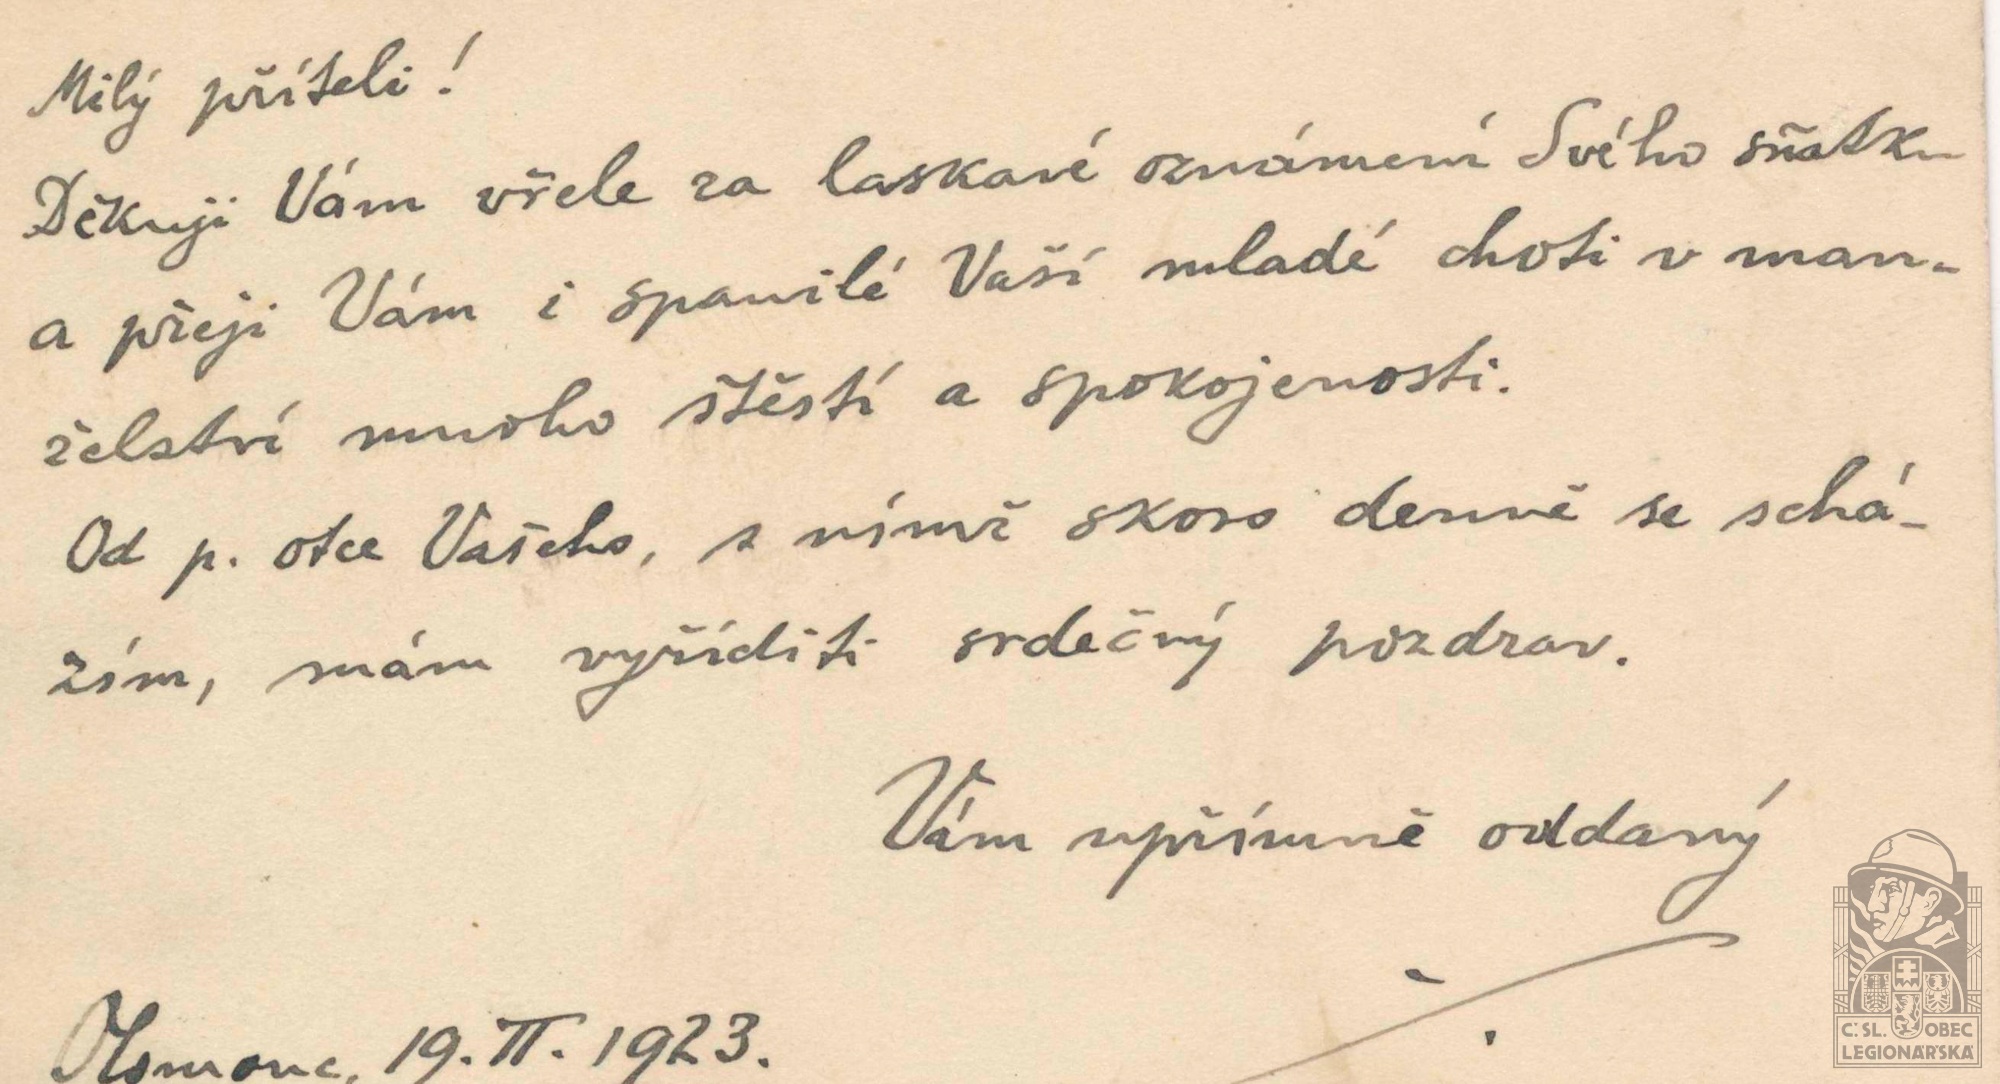 Milý příteli!
Děkuji Vám vřele za laskavé oznámení Svého sňatku
a přeji Vám i spanilé Vaší mladé choti v man-
želství mnoho štěstí a spokojenosti.
Od p. otce Vašeho, s nímž skoro denně se schá-
zím, mám vyříditi srdečný pozdrav.
Vám upřímně oddaný
Olomouc, 19. II. 1923.
Č. SL. OBEC
LEGIONÁŘSKÁ